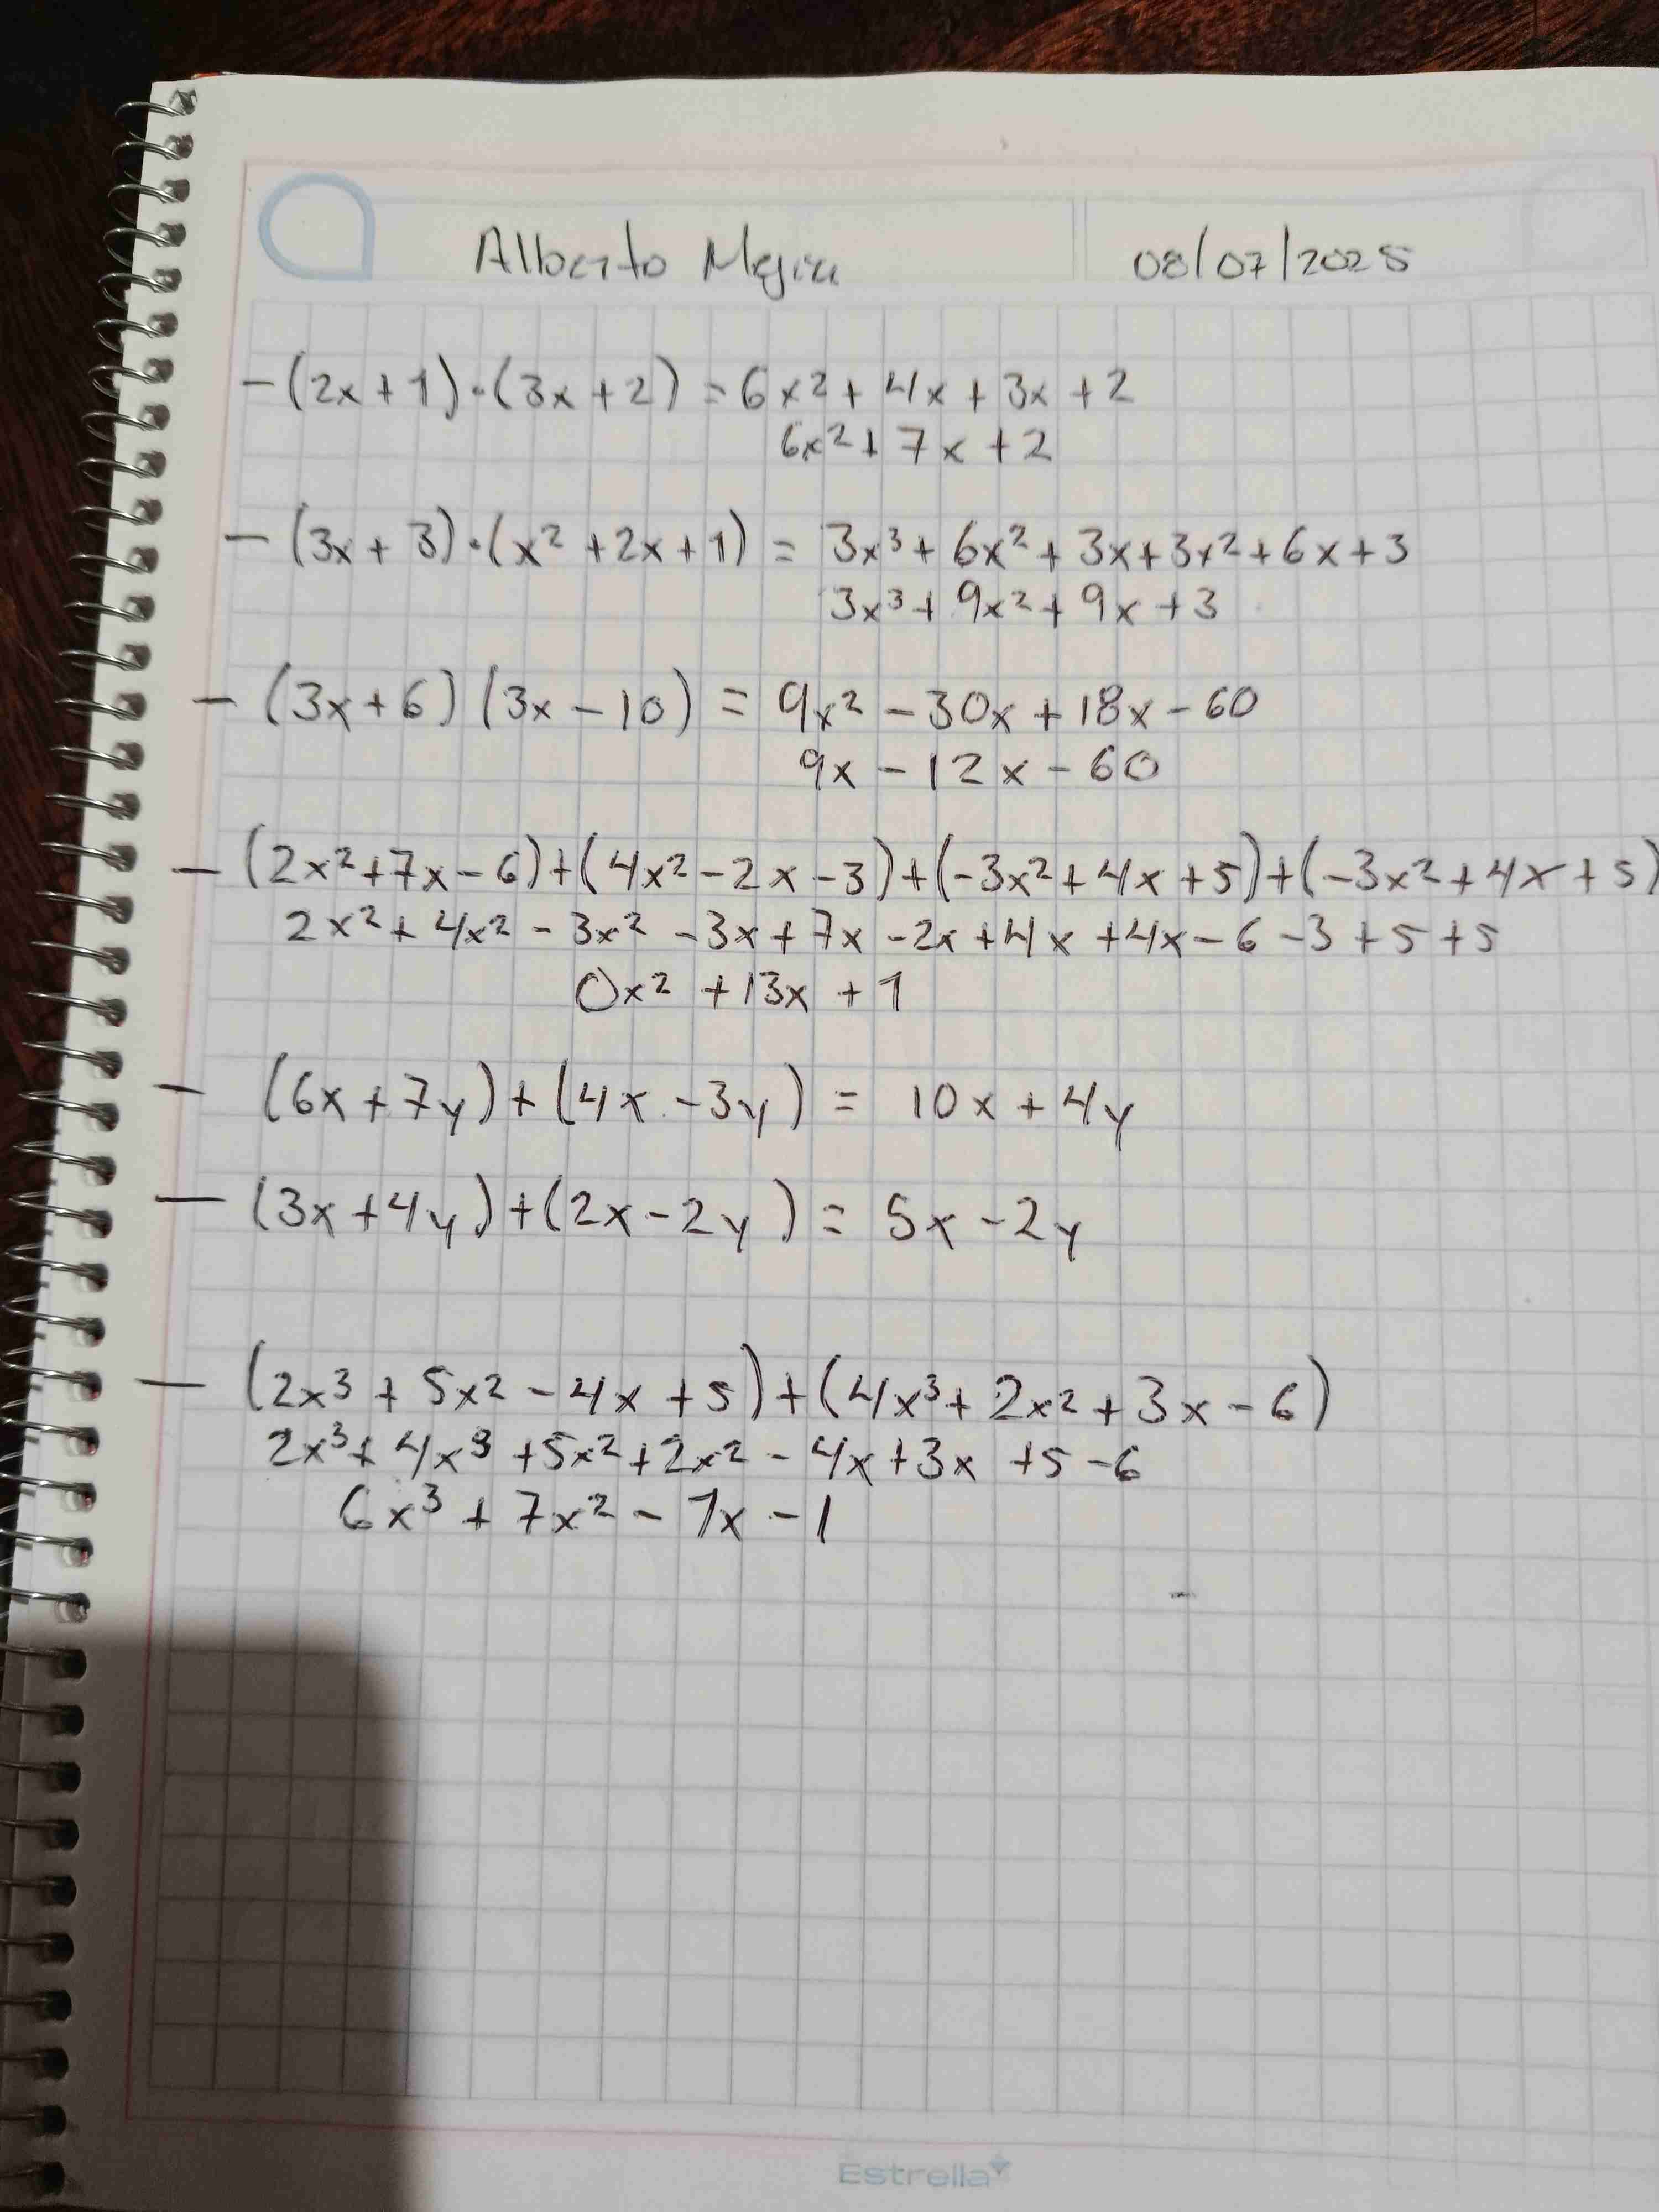 Alberto Mejia
08/07/2025
- (2x + 1) · (3x + 2) = 6x² + 4x + 3x + 2
6x² + 7x + 2
- (3x + 3) · (x² + 2x + 1) = 3x³ + 6x² + 3x + 3x² + 6x + 3
3x³ + 9x² + 9x + 3
- (3x + 6) (3x - 10) = 9x² - 30x + 18x - 60
9x - 12x - 60
- (2x² + 7x - 6) + (4x² - 2x - 3) + (-3x² + 4x + 5) + (-3x² + 4x + 5)
2x² + 4x² - 3x² - 3x + 7x - 2x + 4x + 4x - 6 - 3 + 5 + 5
0x² + 13x + 1
- (6x + 7y) + (4x - 3y) = 10x + 4y
- (3x + 4y) + (2x - 2y) = 5x - 2y
- (2x³ + 5x² - 4x + 5) + (4x³ + 2x² + 3x - 6)
2x³ + 4x³ + 5x² + 2x² - 4x + 3x + 5 - 6
6x³ + 7x² - 1x - 1
Estrella